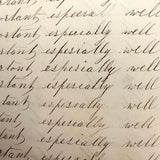 ortant especial well
ortant especially well
ortant especially well
ortant especially well
rtant especially well
ortant especially well
rtant, especially well
tant especially well